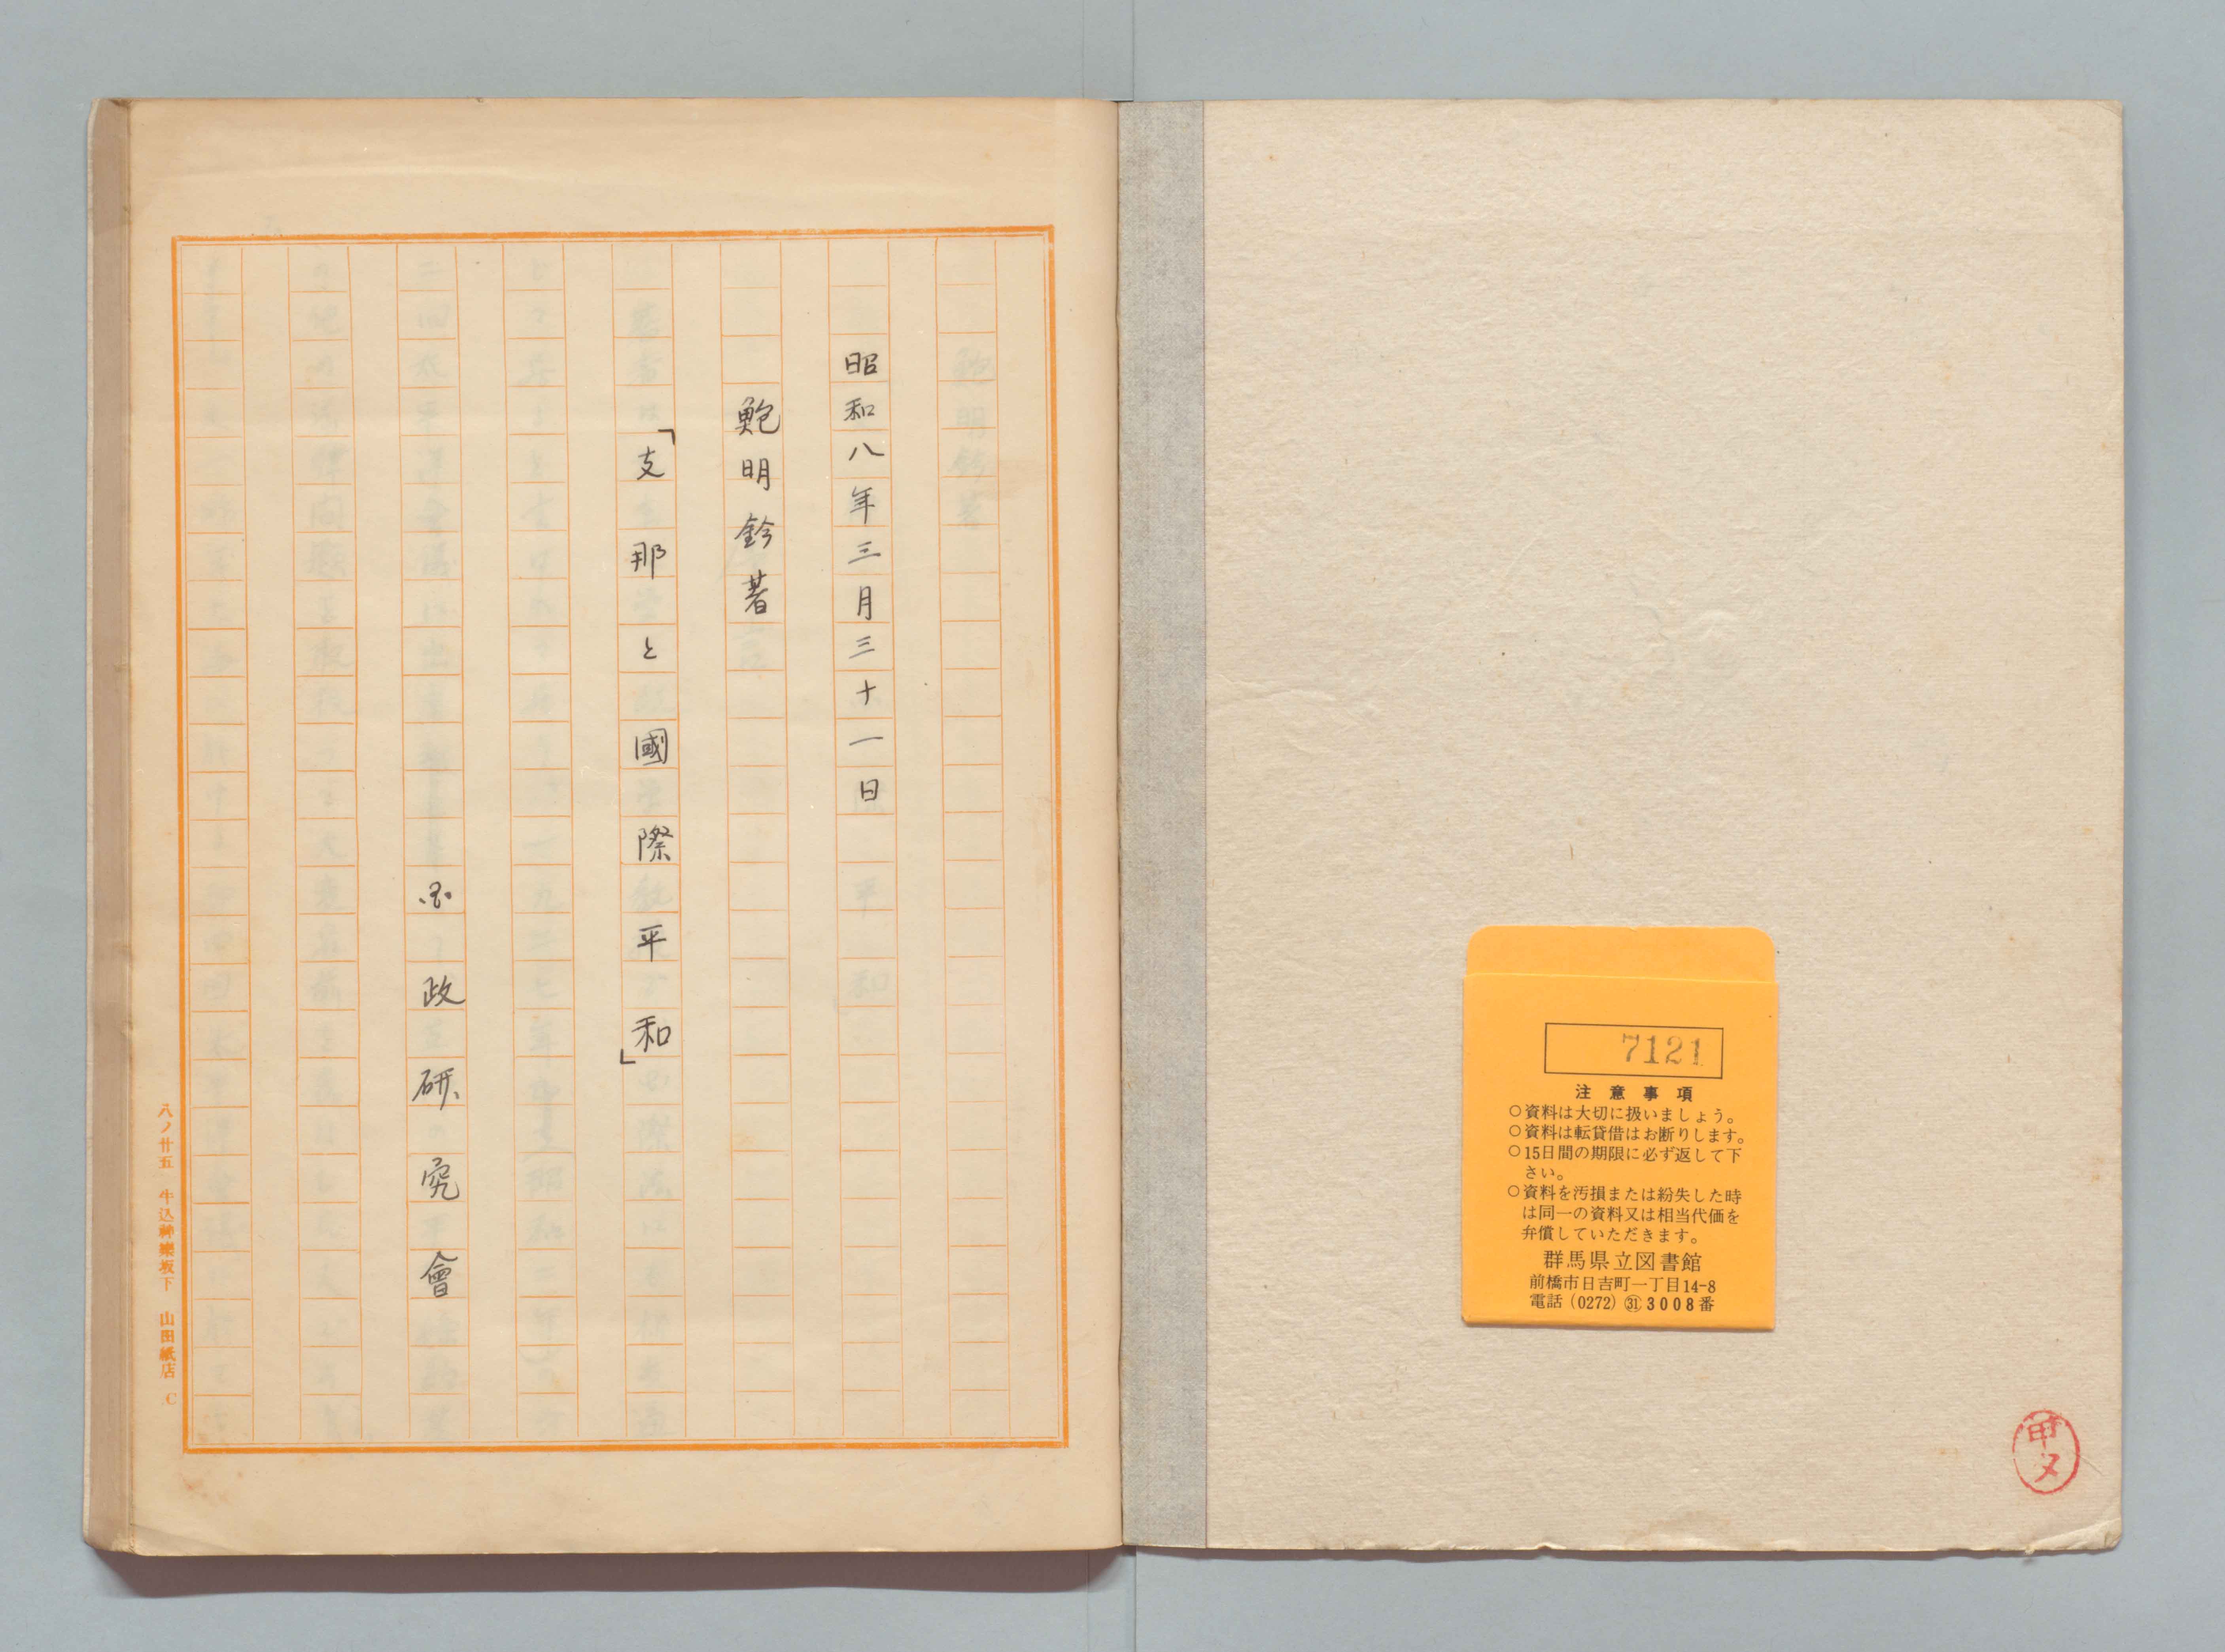 7121
注意事項
○資料は大切に扱いましょう。
○資料は転貸借はお断りします。
○15日間の期限に必ず返して下
さい。
○資料を汚損または紛失した時
は同一の資料又は相当代価を
弁償していただきます。
群馬県立図書館
前橋市日吉町一丁目14-8
電話(0272)㉛3008番
昭和八年三月三十一日
鮑明鈐著
「支那と國際平和」
国政研究會
八ノ廿五 牛込神樂坂下 山田紙店 C